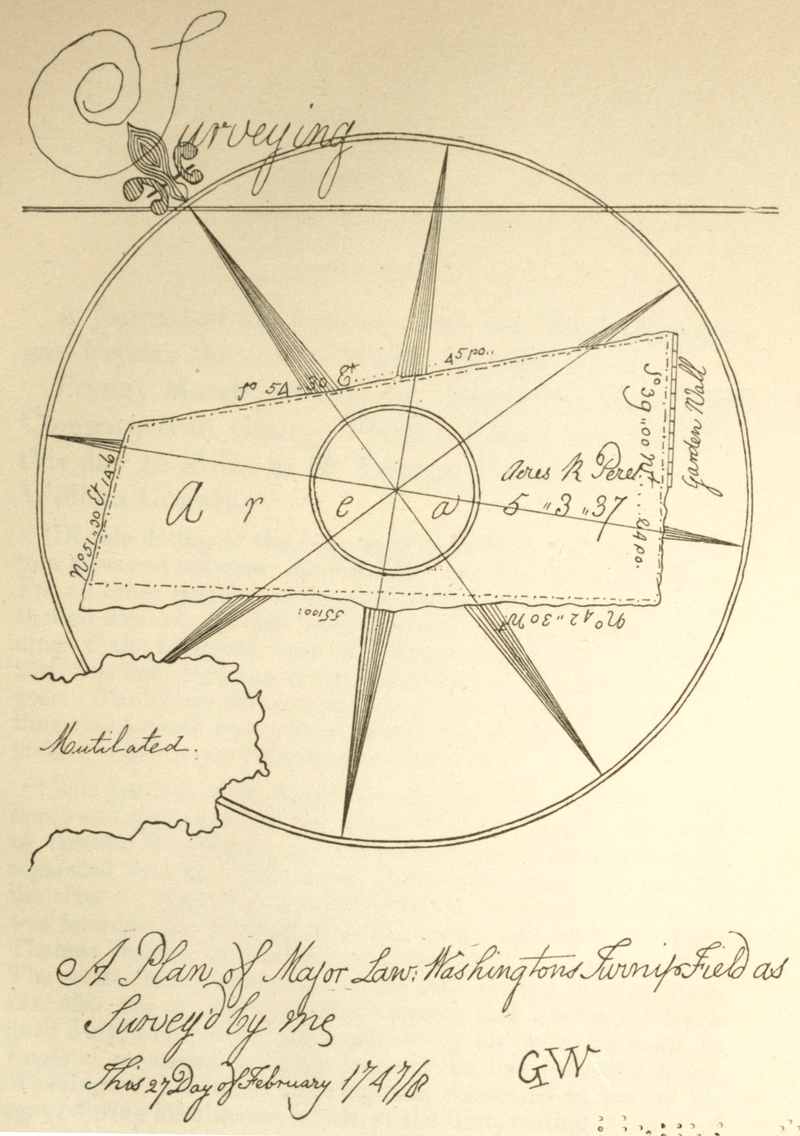 Surveying
So 54 - 30 Et.. 45 po..
So 39 ,, 00 Wt ... 24 po.
Garden Wall
No 51 ,, 30 Et.
Area
Acres R Peret.
5 ,, 3 ,, 37
No 42 ,, 30 Wt
Mutilated.
A Plan of Major Law: Washingtons Turnip Field as
Survey'd by me
This 27 Day of February 1747/8
GW